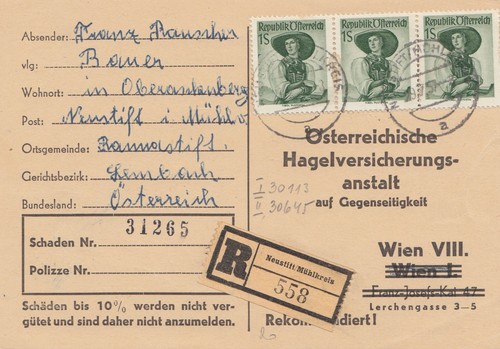 Absender: Franz Rauscher
vlg: Bauer
Wohnort: in Oberankenberg
Post: Neustift i. Mühlv
Ortsgemeinde: Rannastift.
Gerichtsbezirk: Lembach
Bundesland: Österreich
31265
Schaden Nr.
Polizze Nr.
Schäden bis 10% werden nicht ver-
gütet und sind daher nicht anzumelden.
REPUBLIK ÖSTERREICH
1S
REPUBLIK ÖSTERREICH
1S
REPUBLIK ÖSTERREICH
1S
a
a
Österreichische
Hagelversicherungs-
anstalt
auf Gegenseitigkeit
I 30113
II 30645
R
Neustift/Mühlkreis
558
Wien VIII.
Wien I.
Franz-Josefs-Kai 47
Lerchengasse 3–5
Rekommandiert!